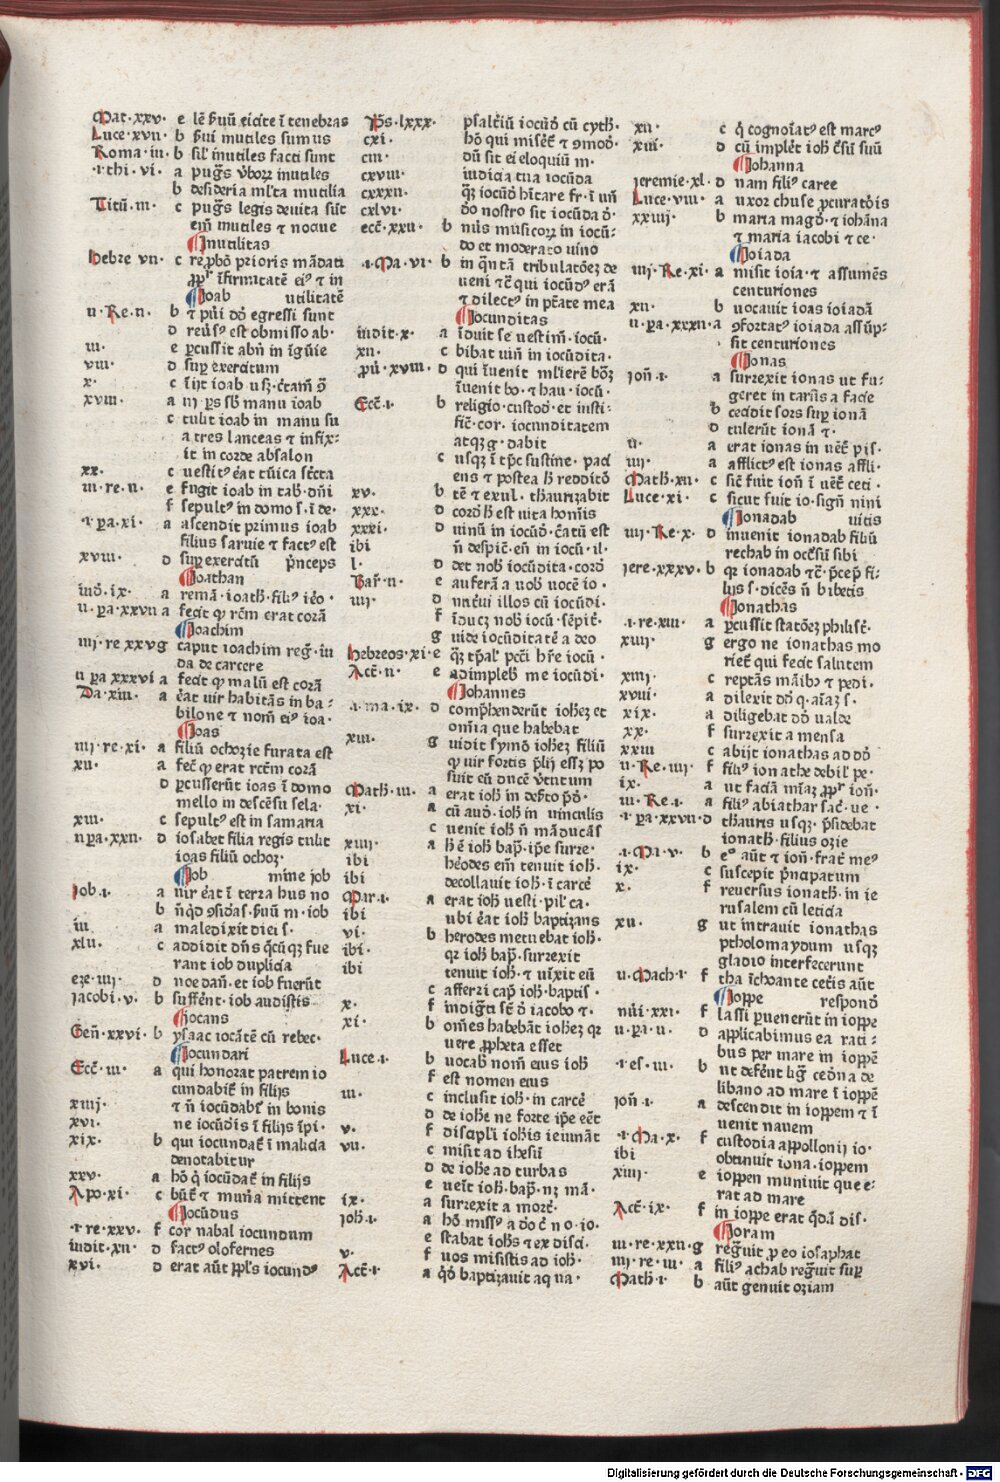 Mat·xxv· e lẽ ẜuũ eicite ĩ tenebras
Luce·xvii· b ẜui inutiles sumus
Roma·iii· b sil' inutiles facti sunt
·i·thi·vi· a pugͣs v̓boꝝ inutiles
b desideria ml'ta inutilia
Titũ·iii· c pugͣs legis deuita sũt
em̃ inutiles ⁊ noxue
Inutilitas
Hebre vii· c reꝓbõ prioris mãdati
ꝓpt' ĩfirmitatẽ eiꝰ ⁊ in
Ioab utilitatẽ
ii·Re·ii· b ⁊ pũi dõ egressi sunt
d reũsꝰ est obmisso ab·
iii· e ꝑcussit abñ in ĩgũie
viii· d suꝑ exercitum
x· c
xviii· a iii ps sb̃ manu ioab
c tulit ioab in manu su
a tres lanceas ⁊ infix⸗
it in corde absalon
xx· c uestitꝰ eat tũica stc̃ta
iii·re·ii· e fugit ioab in tab̃·dñi
f sepultꝰ in domo s·ĩ de·
·i·pa·xi· a ascendit primus ioab
filius saruie ⁊ factꝰ est
xviii· d suꝑ exercitũ p̃nceps
Ioathan
iud̃·ix· a remã·ioath̃·filꝰ ieo·
ii·pa·xxvii a fecit ꝙ rc̃m erat corã
Ioachim
iiii·re xxv g caput ioachim reg̃·iu
da de carcere
ii pa xxxvi a fecit ꝙ malũ est corã
Da·xiii· a eat uir habitãs in ba⸗
bilone ⁊ nom̃ eiꝰ ioa·
Ioas
iiii·re·xi· a filiũ ochozie furata est
xii· a fec̃ ꝙ erat rc̃m corã
d ꝑcusserũt ioas ĩ domo
mello in descẽsu sela·
xiii· c sepultꝰ est in samaria
ii pa·xxii· d iosabet filia regis tulit
ioas filiũ ochoz·
Iob mine job
Iob·i· a uir eat ĩ terra hus no
b ñqd ꝯsidas·ẜuũ m·iob
iii a maledixit diei s·
xlii· c addidit dñs q̃cũqꝫ fue
rant iob duplicia
eze·iiii· d noe dañ·et iob fuerũt
Iacobi·v· b suffent·iob audistis
Iocans
Geñ·xxvi· b ysaac iocãtẽ cũ rebec·
Iocundari
Ecc̃·iii· a qui honorat patrem io
cundabit̃ in filijs
xiiii· c ⁊ ñ iocũdab̃ in bonis
xvi· ne iocũdis ĩ filijs ĩpi·
xix· b qui iocundat̃ ĩ malicia
denotabitur
xxv· a hõ q̇ iocũdat̃ in filijs
Apo·xi· c ⁊ muña mittent
Iocũdus
·i·re·xxv· f cor nabal iocundum
iudit·xii· d factꝰ olofernes
xvi· d erat aũt ppl's iocundꝰ
Ps·lxxx· psalt'iũ iocũd̃ cũ cyth̃·
cxi· hõ qui misẽt̃ ⁊ ꝯmod̃·
ciii· dũ sit ei eloquiũ m·
cxviii· iudicia tua iocũda
cxxxii· qͣꝫ iocũd̃ hĩtare fr·ĩ uñ
cxlvi· dõ nostro sit iocũda õ·
ecc̃·xxii· b niũs musicoꝝ in iocũ⸗
do et moderato uino
·i·Ma·vi· b in q̃ntã tribulatõeꝫ de
ueni ⁊c̃ qui iocũdꝰ erã
⁊ dilectꝰ in ptãte mea
Iocunditas
iudit·x· a ĩduit se uestim̃·iocũ·
xii· c bibat uiñ in iocũdita·
pu̇·xviii· d qui ĩuenit ml'ierẽ boꝫ
ĩuenit bo·⁊ hau·iocũ·
Ecc̃·i· b religio·custod·et iusti⸗
fic̃·cor·iocunditatem
atqꝫ g·dabit
c usqꝫ ĩ tp̃c sustine·paci
ens ⁊ postea h̃ redditõ
xv· b tẽ ⁊ exul·th̃aurizabit
xxx· d cord̃ h̃ est uita homĩs
xxxi· d uinũ in iocũd̃·c̃atũ est
ibi ñ despic̃·eũ in iocũ·il·
l· d det nob̃ iocũdita·cord̃
Bar̃·ii· e auferã a uob̃ uocẽ io·
iiii· d nut̓ui illos cũ iocũdi·
f ĩducꝫ nob̃ iocũ·sẽpit̃·
g uide iocũditatẽ a deo
Hebreos·xi·e q̃ꝫ tp̃al' pc̃ci h̃re iocũ·
Act̃·ii· e adimpleb̃ me iocũdi·
Iohannes
·i·ma·ix· d comp̃henderũt ioh̃eꝫ et
om̃ia que habebat
xiii· g uidit symõ ioh̃eꝫ filiũ
ꝙ uir fortis p̃lij essꝫ po
suit cũ ducẽ v̓tutum
Math̃·iii· a erat ioh̃ in deẜto pd̃·
xi· a cũ aud̃·ioh̃ in uinculis
c uenit ioh̃ ñ mãducãs
xiiii· a h̃ ẽ ioh̃ bap̃·ip̃e surre·
ibi herodes em̃ tenuit ioh̃·
ibi decollauit ioh̃·ĩ carcẽ
Mar·i· a erat ioh̃ uesti·pil' ca·
ibi ubi eat ioh̃ baptizans
vi· b herodes metuebat ioh̃·
ibi· qꝛ ioh̃ bap̃·surrexit
ibi tenuit ioh̃·⁊ uĩxit eũ
c afferri cap̃ ioh̃·baptis·
x· f indigͣti st̃ d̃ iacobo ⁊·
xi· b om̃es habebãt ioh̃eꝫ qꝛ
uere ꝓpheta esset
Luce·i· b uocab̃ nom̃ eius ioh̃
f est nomen eius
iii· c inclusit ioh̃·in carcẽ
d de ioh̃e ne forte ip̃e eẽt
v· f discipl'i ioh̃is ieiunãt
vii· c misit ad ihesũ
d de ioh̃e ad turbas
e ueĩt ioh̃·bap̃·nꝫ mã·
ix· a surrexit a mort̃·
Ioh̃·i· a hõ missꝰ a do c̃ no·io·
e stabat ioh̃s ⁊ ex disci·
v· f uos misistis ad ioh̃·
Act̃·i· a qd̃ baptizauit aqua·
xii· c q̇ cognoĩatꝰ est marcꝰ
xiii· d cũ implet̓ ioh̃ c̃sũ suũ
Iohanna
Jeremie·xl· d nam filiꝰ caree
Luce·viii· a uxor chuse ꝓcuratõis
xxiiij· b maria magd̃·⁊ iohãna
⁊ maria iacobi ⁊ ce·
Ioiada
iiij·Re·xi· a misit ioia·⁊ assumẽs
centuriones
xii· b uocauit ioas ioiadã
ii·pa·xxxii·a ꝯfortatꝰ ioiada assũp⸗
sit centuriones
Ionas
Ioñ·i· a surrexit ionas ut fu⸗
geret in tarsis a facie
b cecidit sors suꝑ ionã
d tulerũt ionã ⁊·
ii· a erat ionas in uẽt̃ pis·
iiij· a afflictꝰ est ionas affli·
Math̃·xii· c sic̃ fuit ioñ ĩ uẽt̃ ceti·
Luce·xi· c sicut fuit io·sigñ nini
Ionadab uitis
iiij·Re·x· d inuenit ionadab filiũ
rechab in occ̃sũ sibi
Iere·xxxv·b qꝛ ionadab ⁊c̃·p̃cep̃ fi⸗
lijs s·dicẽs ñ bibetis
Ionathas
·i·re·xiii· a ꝑcussit statõeꝫ philist̃·
xiiij· g ergo ne ionathas mo
riet̃ qui fecit salutem
xiiij· c reptãs mãibꝰ ⁊ pedi·
xviii· a dilexit dd̃ q·aĩaꝫ s·
xix· a diligebat dd̃ ualde
xx· f surrexit a mensa
xxiii c abijt ionathas ad dd̃
ii·Re·iiij· f filiꝰ ionathe debil' pe·
ix· a ut faciã mĩaꝫ ꝓpt' ioñ·
iii·Re·i· a filiꝰ abiathar sac̃·ue·
·i·pa·xxvii·d th̃auris usqꝫ·p̃sidebat
ionath̃·filius ozie
·i·Ma·v· b eº aũt ⁊ ioñ·frat̃ meꝰ
ix· c suscepit p̃ncipatum
x· f reuersus ionath̃·in ie
rusalem cũ leticia
xii· g ut intrauit ionathas
ptholomaydum usqꝫ
gladio interfecerunt
ii·Mach·i· f tha ĩchoante cet̃is aũt
Ioppe respond̃
nũi·xxi· f lassi ꝑuenerũt in ioppe
ii·pa·ii· d applicabimus ea rati⸗
bus per mare in ioppẽ
·i·es·iii· b ut defẽnt lig̃ cedrina de
libano ad mare ĩ ioppẽ
Ioñ·i· a descendit in ioppem ⁊ ĩ
uenit nauem
·i·Ma·x· f custodia appollonij io·
ibi obtinuit iona·ioppem
xiiij· e ioppen muniuit que e⸗
rat ad mare
Act̃·ix· f in ioppe erat qd̃ã dis·
Ioram
iii·re·xxii·g reg̃uit ꝓ eo iosaphat
iiij·re·iii· a filiꝰ achab reg̃uit suꝑ
Math̃·i· b aũt genuit oziam
Digitalisierung gefördert durch die Deutsche Forschungsgemeinschaft - DFG